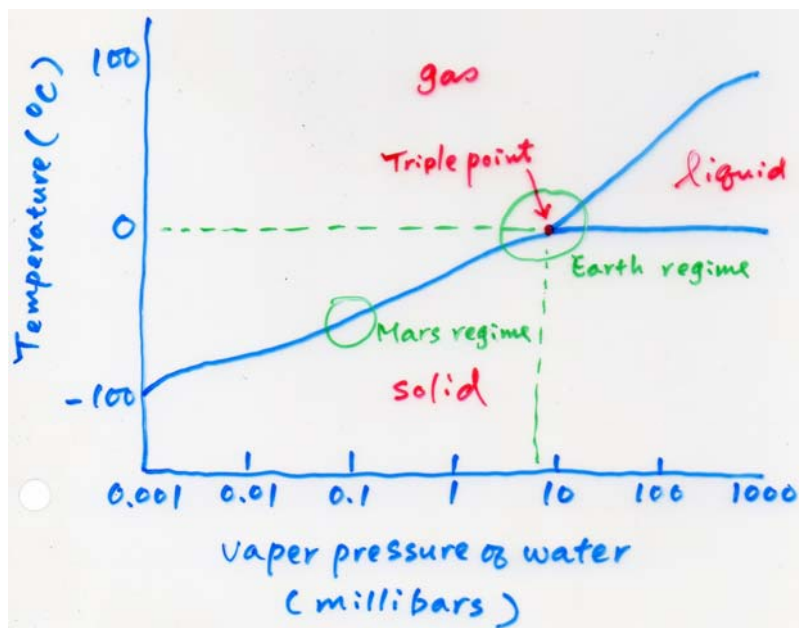 Temperature (°C)
100
gas
Triple point
liquid
0
Earth regime
Mars regime
-100
solid
0.001 0.01 0.1 1 10 100 1000
vaper pressure of water
(millibars)